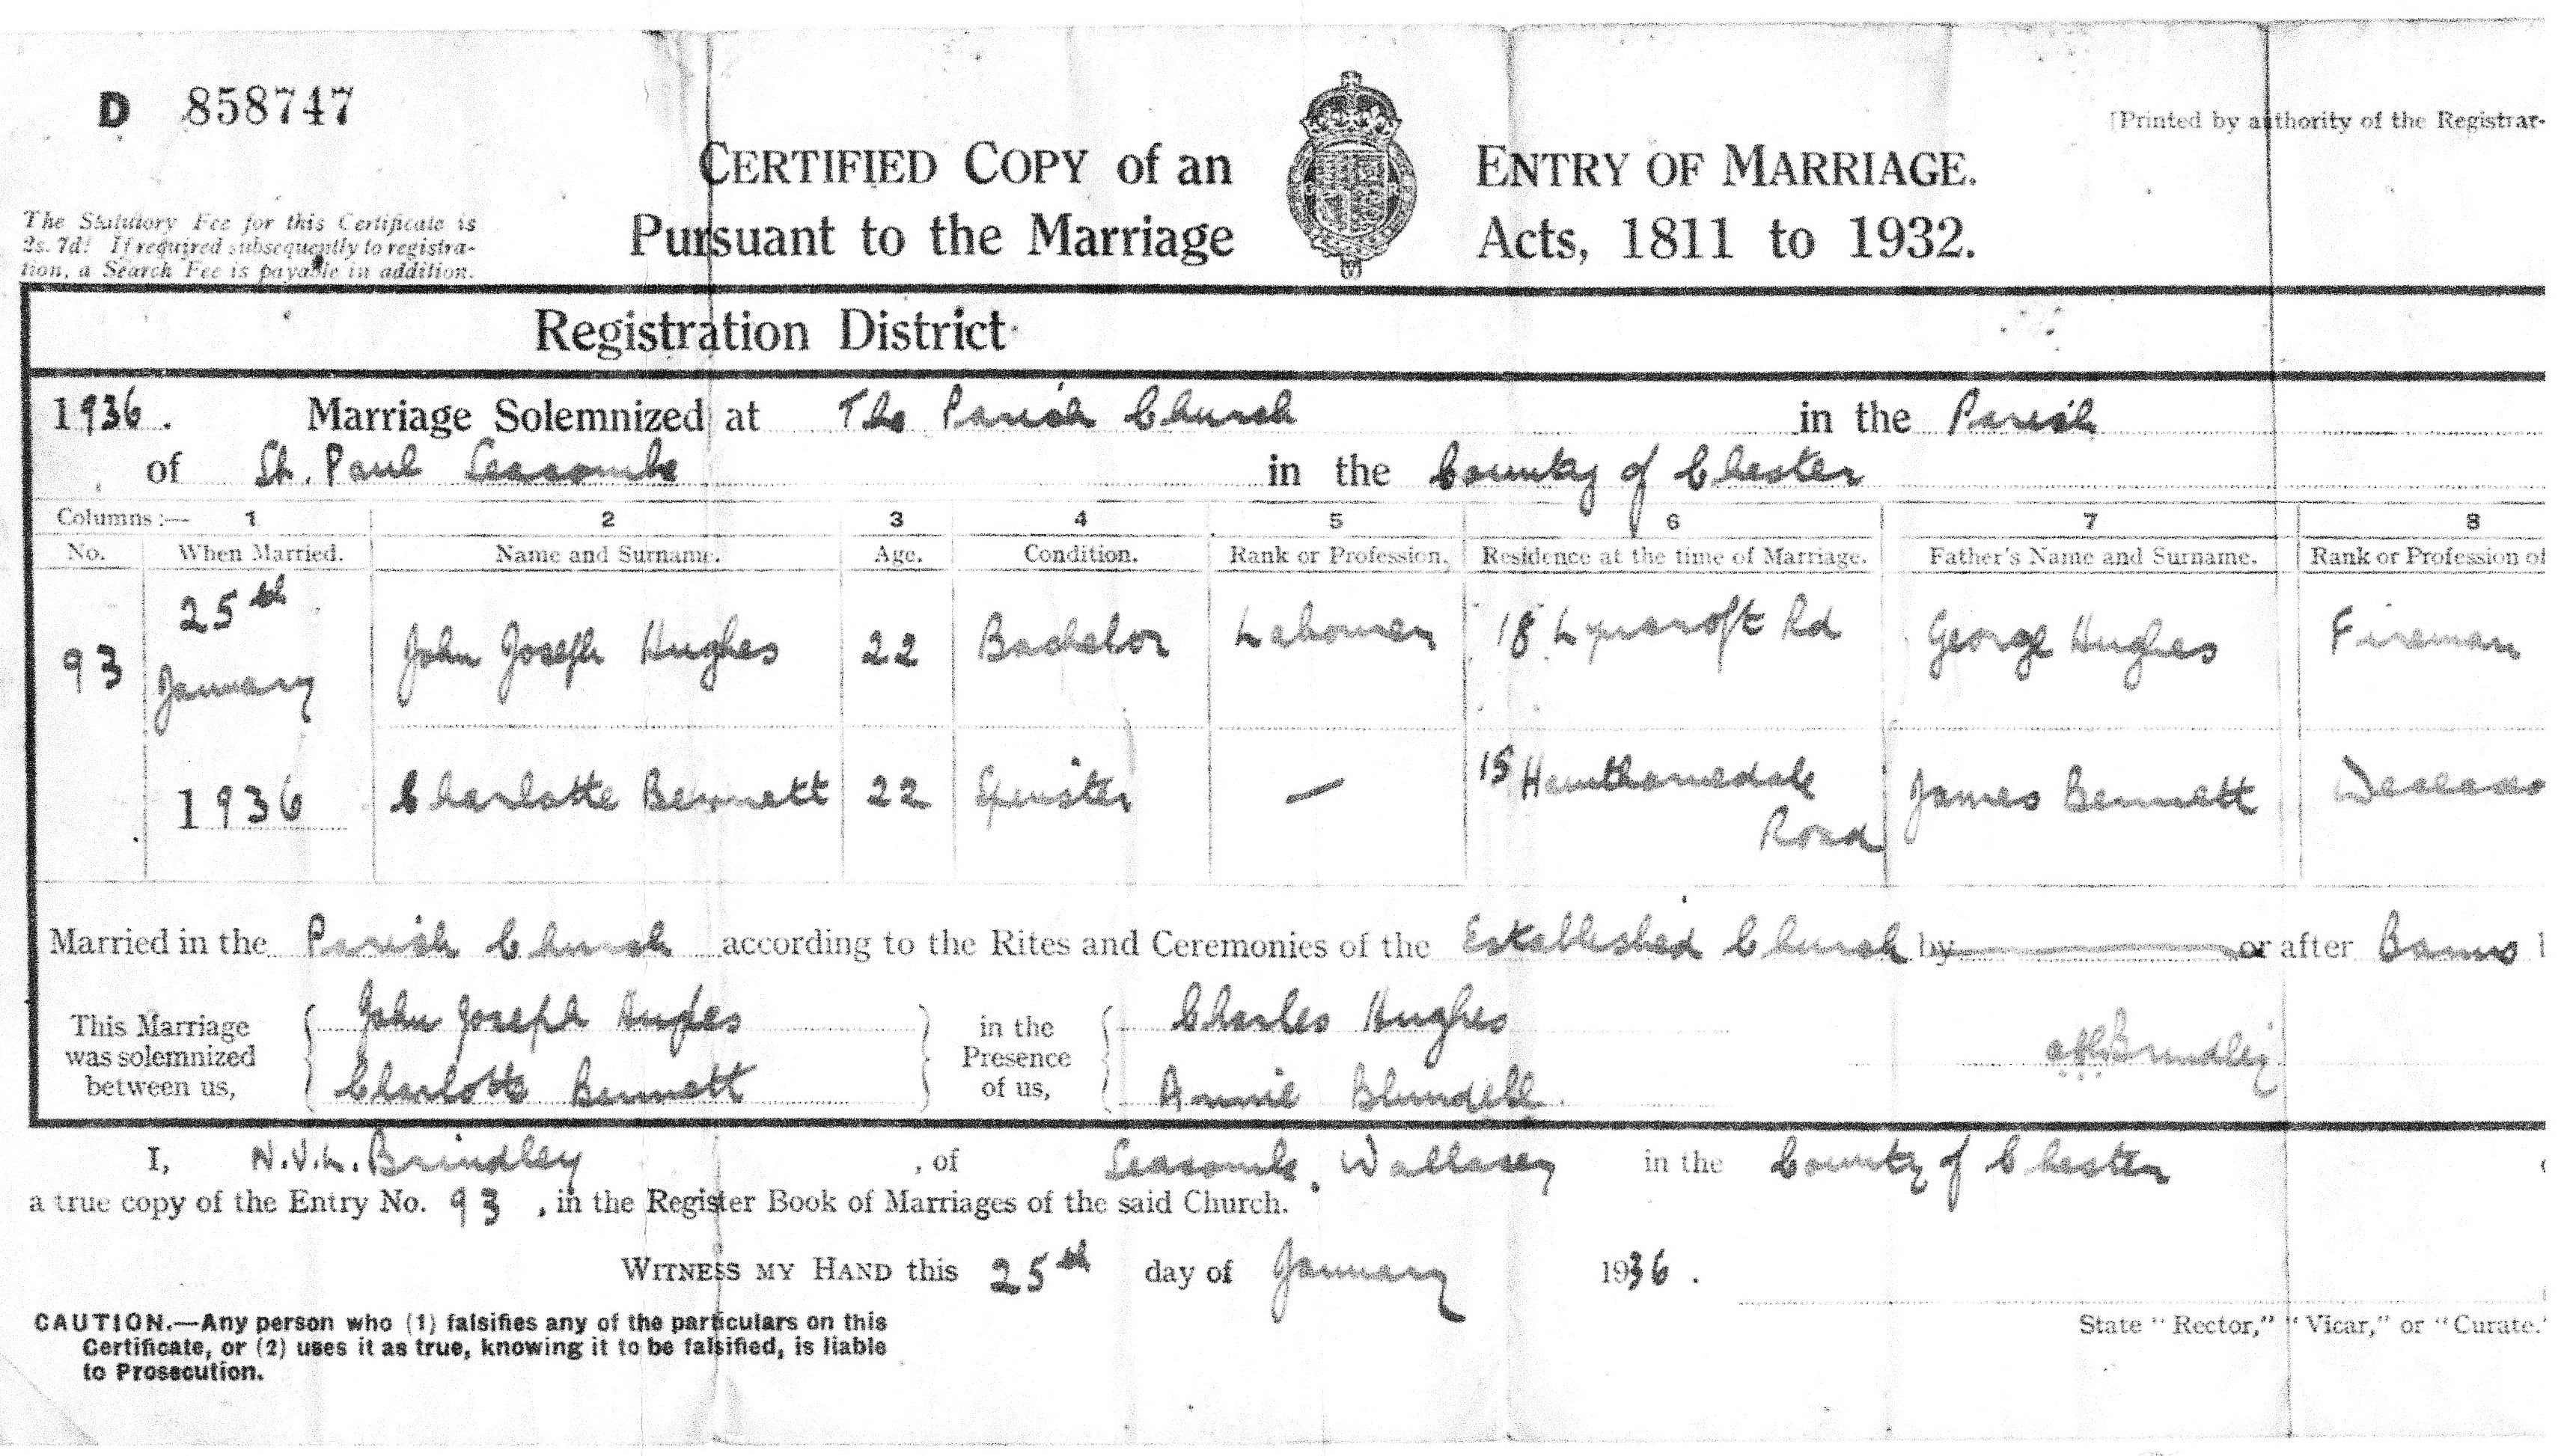 D 858747
[Printed by authority of the Registrar-
CERTIFIED COPY of an ENTRY OF MARRIAGE.
Pursuant to the Marriage Acts, 1811 to 1932.
The Statutory Fee for this Certificate is
2s. 7d. If required subsequently to registra-
tion, a Search Fee is payable in addition.
Registration District
1936. Marriage Solemnized at The Parish Church in the Parish
of St. Paul Seacombe in the County of Chester
Columns:— 1 2 3 4 5 6 7 8
No. When Married. Name and Surname. Age. Condition. Rank or Profession. Residence at the time of Marriage. Father's Name and Surname. Rank or Profession of
93 25th January 1936 John Joseph Hughes 22 Bachelor Labourer 18 Lyncroft Rd George Hughes Fireman
Charlotte Bennett 22 Spinster — 15 Hawthornedale Road James Bennett Deceased
Married in the Parish Church according to the Rites and Ceremonies of the Established Church by or after Banns
This Marriage was solemnized between us, John Joseph Hughes in the Presence of us, Charles Hughes
Charlotte Bennett Annie Blundell Brindley
I, N.V.L. Brindley, of Seacombe, Wallasey in the County of Chester
a true copy of the Entry No. 93, in the Register Book of Marriages of the said Church.
WITNESS MY HAND this 25th day of January 1936.
CAUTION.—Any person who (1) falsifies any of the particulars on this
Certificate, or (2) uses it as true, knowing it to be falsified, is liable
to Prosecution.
State "Rector," "Vicar," or "Curate."